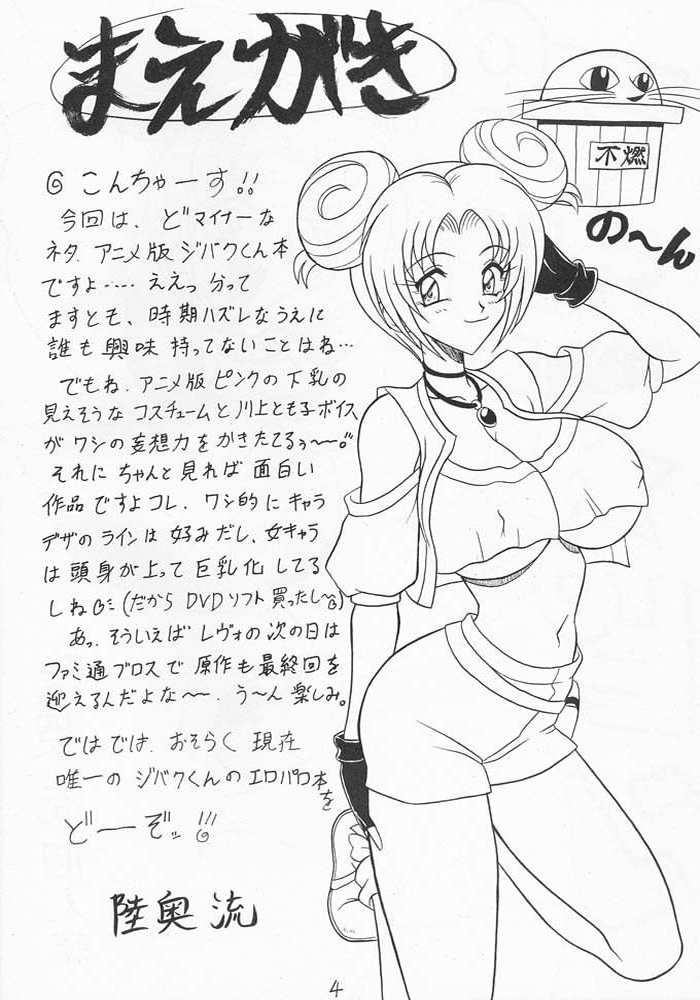 まえがき
不燃
の〜ん
◎こんちゃーす!!
今回は、どマイナーな
ネタ、アニメ版ジバクくん本
ですよ‥‥ええっ分って
ますとも、時期ハズレなうえに
誰も興味持ってないことはね…
でもね、アニメ版ピンクの下乳の
見えそうなコスチュームと川上とも子ボイス
がワシの妄想力をかきたてるぅ〜〜。
それにちゃんと見れば面白い
作品ですよコレ、ワシ的にキャラ
デザのラインは好みだし、女キャラ
は頭身が上って巨乳化してる
しね (だからDVDソフト買ったし〜)
あっ、そういえばレヴォの次の日は
ファミ通ブロスで原作も最終回を
迎えるんだよな〜〜、う〜ん楽しみ。
ではでは、おそらく現在
唯一のジバクくんのエロパロ本を
どーぞッ!!!
陸奥流
4